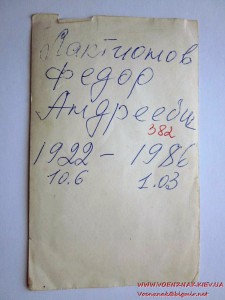 Лактионов
Федор
Андреевич
382
1922 – 1986
10.6 1.03
WWW.VOENSNAK.KIEV.UA
Voensnak@bigmir.net